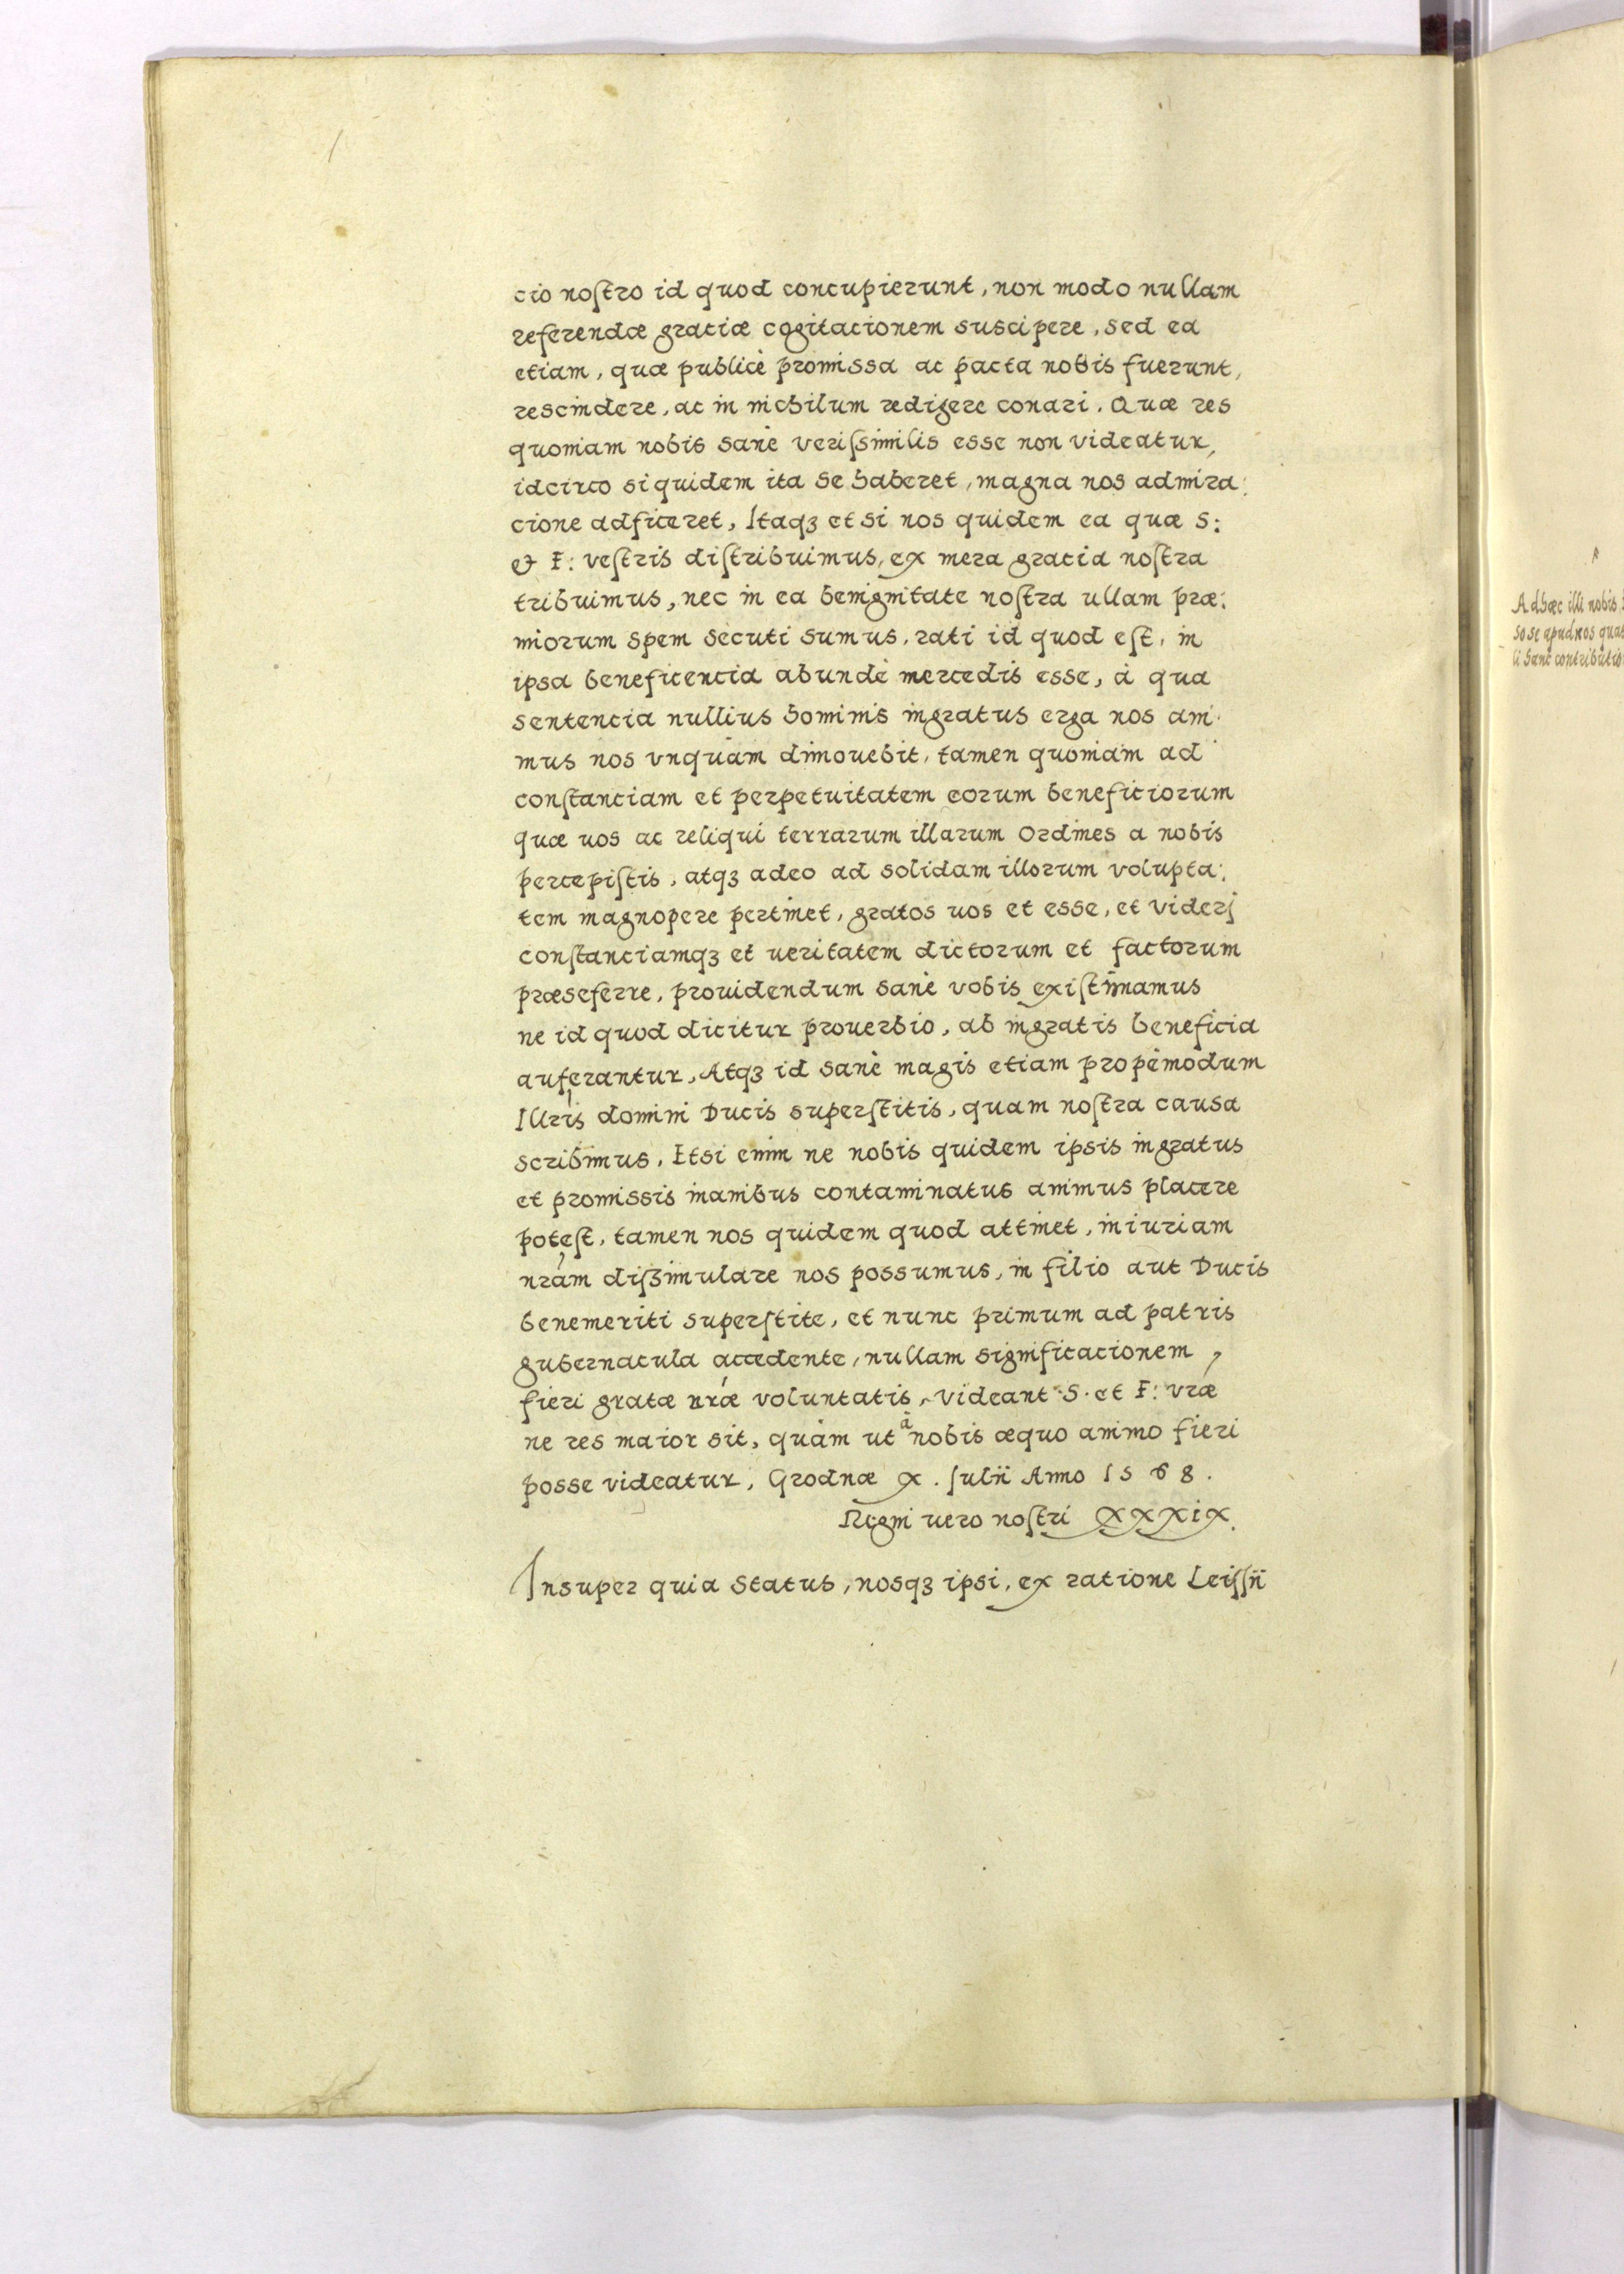 cio noſtro id quod concupierunt, non modo nullam
referendæ graciæ cogitacionem suscipere, sed ea
etiam, quæ publicè promissa ac pacta nobis fuerunt,
rescindere, ac in nichilum redigere conari. Quæ res
quoniam nobis sanè veriſsimilis esse non videatur,
idcirco siquidem ita se haberet, magna nos admira:
cione adficeret, Itaqꝫ etsi nos quidem ea quæ S:
& F: veſtris diſtribuimus, ex mera gracia noſtra
tribuimus, nec in ea benignitate noſtra ullam præ:
miorum spem secuti sumus, rati id quod eſt, in
ipsa beneficencia abundè mercedis esse, à qua
sentencia nullius hominis ingratus erga nos ani:
mus nos vnquàm dimouebit, tamen quoniàm ad
conſtanciam et perpetuitatem eorum beneficiorum
quæ uos ac reliqui terrarum illarum Ordines a nobis
percepiſtis, atqꝫ adeo ad solidam illorum volupta:
tem magnopere pertinet, gratos uos et esse, et viderj
conſtanciamqꝫ et ueritatem dictorum et factorum
præseferre, prouidendum sanè vobis exiſtimamus
ne id quod dicitur prouerbio, ab ingratis beneficia
auferantur, Atqꝫ id sanè magis etiam propèmodum
Illris domini Ducis superſtitis, quam noſtra causa
scribimus, Etsi enim ne nobis quidem ipsis ingratus
et promissis inanibus contaminatus animus placere
poteſt, tamen nos quidem quod attinet, iniuriam
nràm diſsimulare nos possumus, in filio aut Ducis
benemeriti superſtite, et nunc primum ad patris
gubernacula accedente, nullam significacionem
fieri gratæ nræ voluntatis, videant S. et F: vræ
ne res maior sit, quàm ut à nobis æquo animo fieri
posse videatur, Grodnæ X. Julii Anno 1568.
Regni uero noſtri XXXiX.
Insuper quia status, nosqꝫ ipsi, ex ratione Leiſsii
Adhæc illi nobis
so se apud nos quas
li hanc contributio